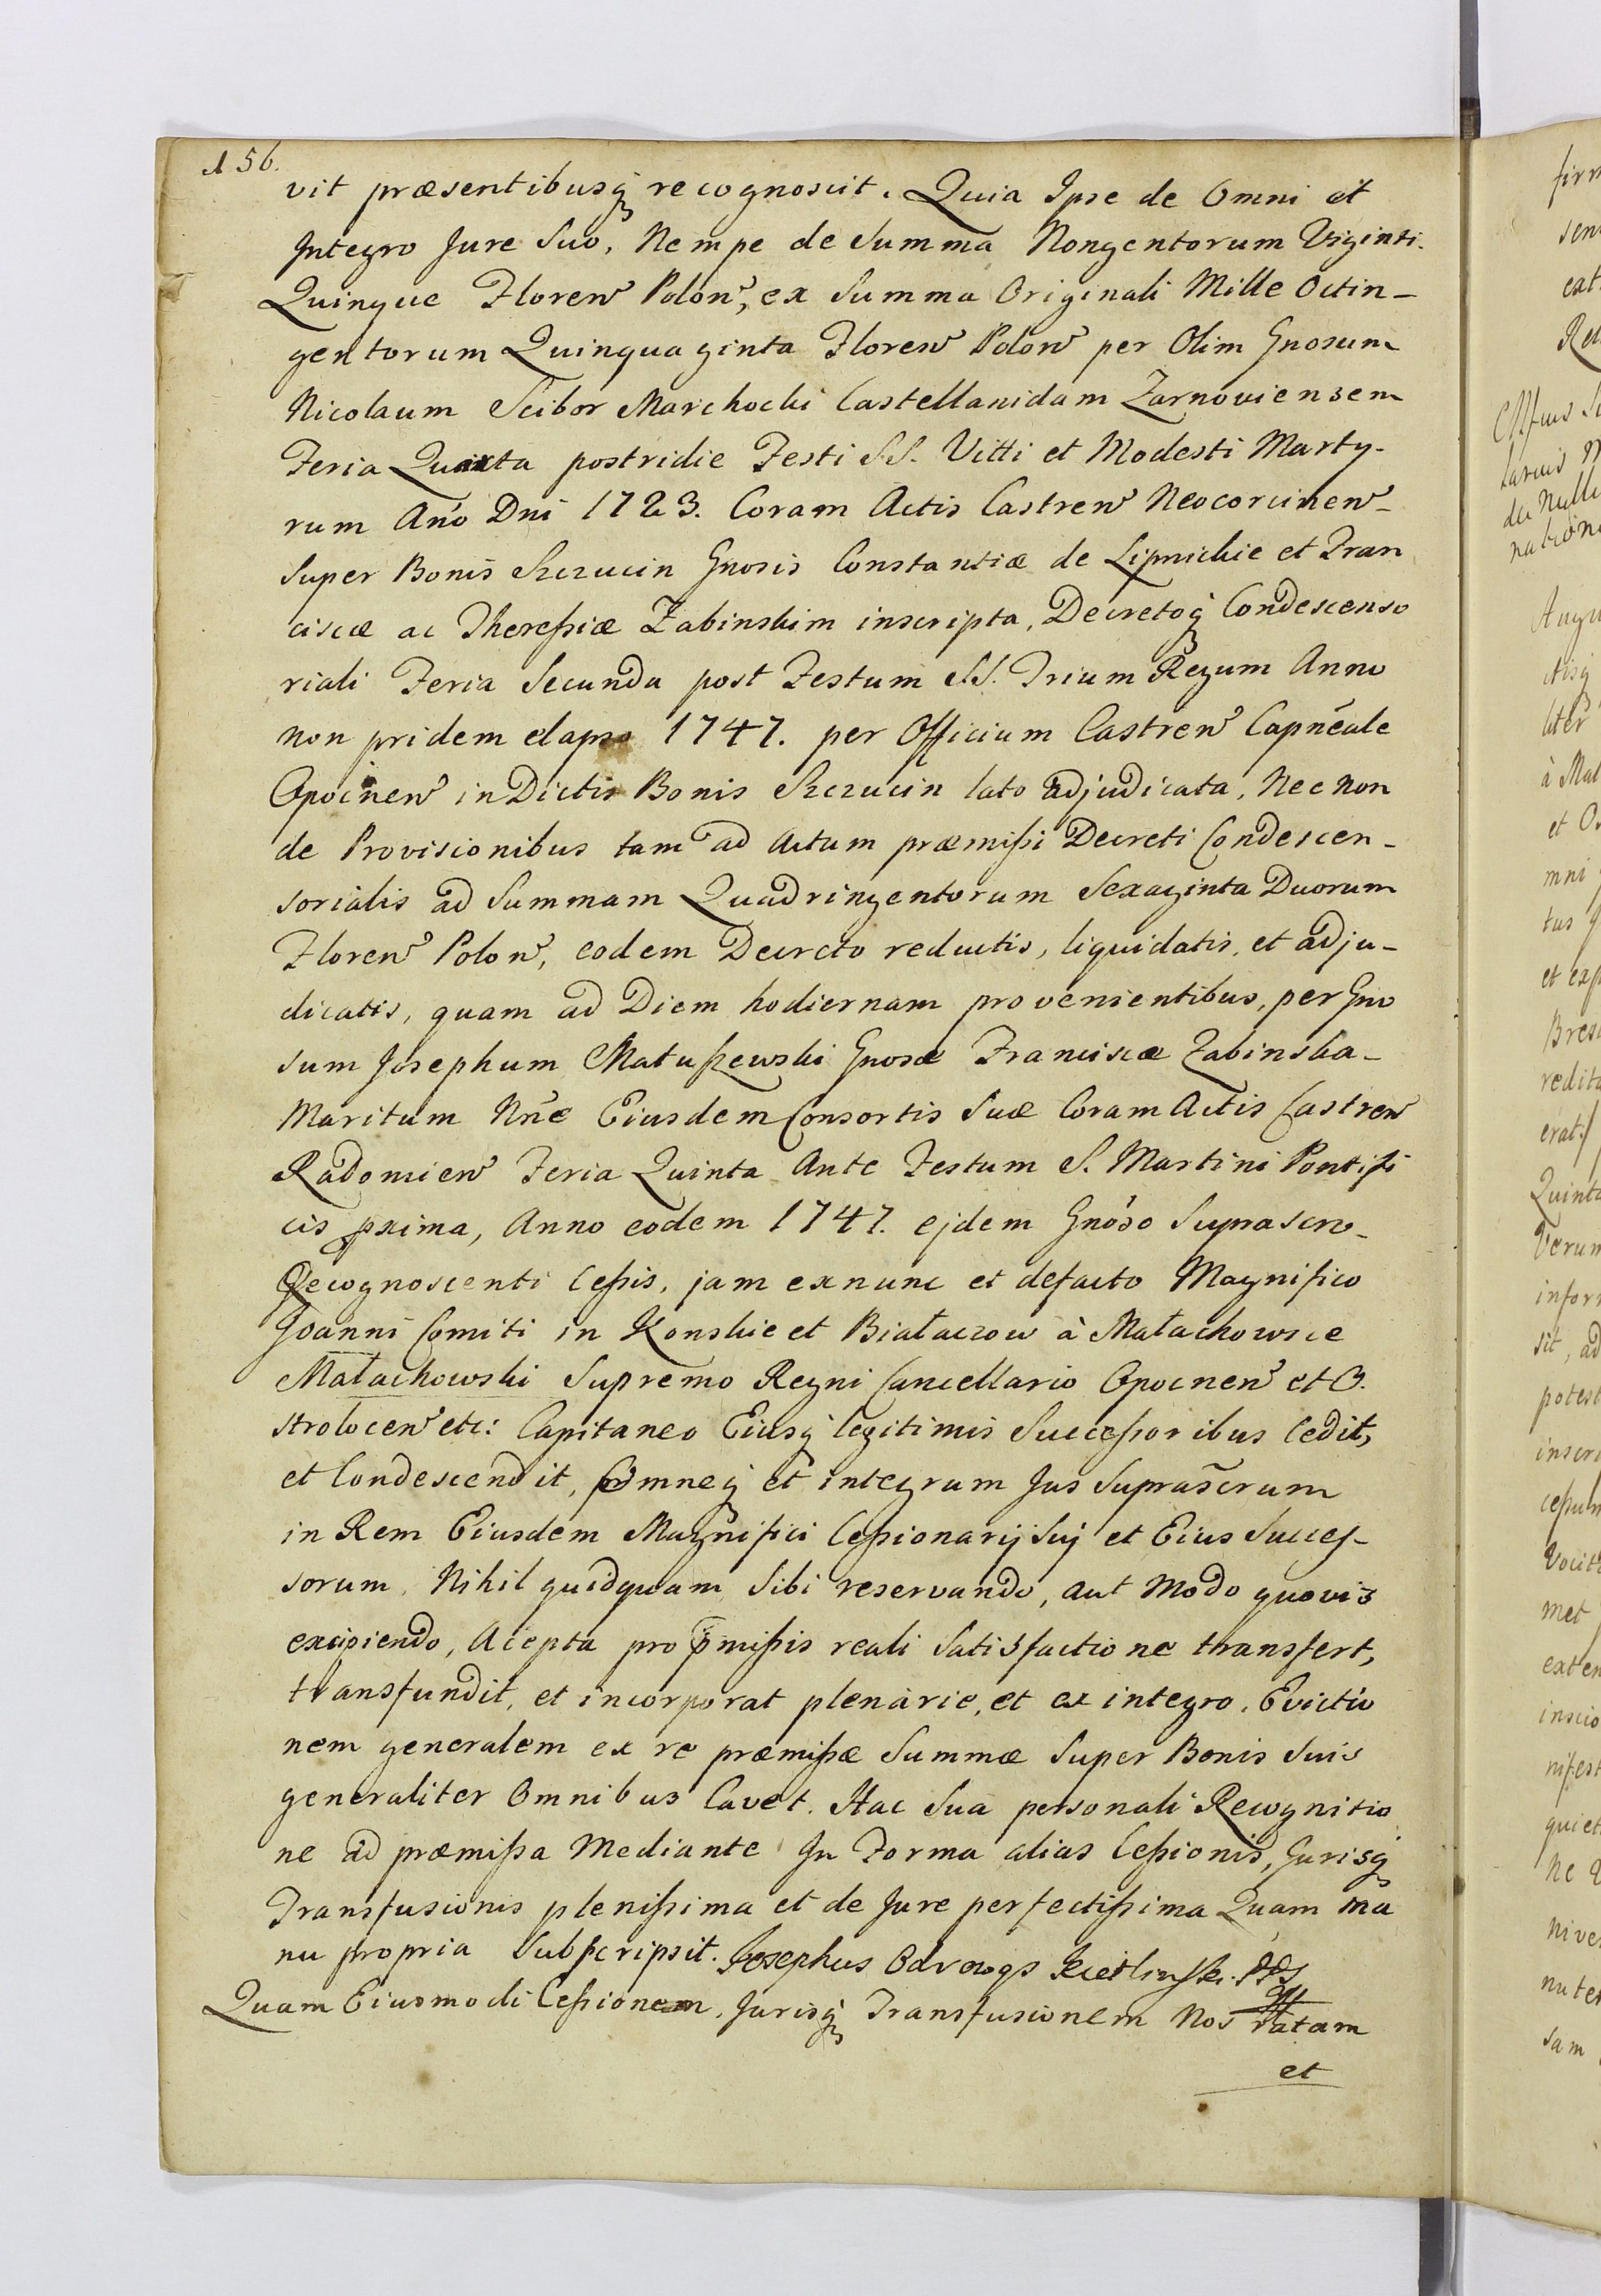 156.
vit præsentibusq́ recognoscit. Quia Ipse de Omni et
Integro Jure Suo, Nempe de Summa Nongentorum Viginti
Quinque Floren Polon, ex Summa Originali Mille Octin-
gentorum Quinquaginta Floren Polon per Olim Gnosum
Nicolaum Scibor Marchocki Castellanidam Zarnoviensem
Feria Quarta postridie Festi SS. Vitti et Modesti Marty-
rum Ano Dni 1723. Coram Actis Castren Neocorcinen
Super Bonis Szczucin Gnosis Constantiæ de Lipnickie et Fran
ciscæ ac Theressiæ Zabinskim inscripta, Decretoq́ Condescenso
riali Feria Secunda post Festum SS. Trium Regum Anno
non pridem elapso 1747. per Officium Castren Capneale
Opocnen in Dictis Bonis Szczucin lato adjudicata, Nec non
de Provisionibus tam ad Actum præmissi Decreti Condescen-
sorialis ad Summam Quadringentorum Sexaginta Duorum
Floren Polon, eodem Decreto reductis, liquidatis, et adju-
dicatis, quam ad Diem hodiernam provenientibus, per Gno
sum Josephum Matuszewski Gnosæ Franciscæ Zabinska
Maritum Nne Eiusdem Consortis Suæ Coram Actis Castren
Radomien Feria Quinta Ante Festum S. Martini Pontifi
cis pxima, Anno eodem 1747. ejdem Gnoso Suprascro
Recognoscenti Cessis, jam exnunc et defacto Magnifico
Joanni Comiti in Konskie et Białaczow à Małachowice
Małachowski Supremo Regni Cancellario Opocnen et O.
strolocen etc: Capitaneo Eiusq́ legitimis Successoribus Cedit,
et Condescendit, Omneq́ et integrum Jus Suprascrum
in Rem Eiusdem Magnifici Cessionarij Sui et Eius Succes-
sorum, Nihil quidquam Sibi reservando, aut Modo quovis
excipiendo, Acepta pro pmissis reali Satisfactione transfert,
transfundit, et incorporat plenarie, et ex integro, Evictio
nem generalem ex re præmissæ Summæ Super Bonis Suis
generaliter Omnibus Cavet. Hac Sua personali Recognitio
ne ad præmissa Mediante In Forma alias Cessionis, Jurisq́
Transfusionis plenissima et de Jure perfectissima Quam ma
nu propria Subscripsit. Josephus Odrowąs Kietlinski
Quam Eiusmodi Cessionem, Jurisq́ Transfusionem Nos ratam
et